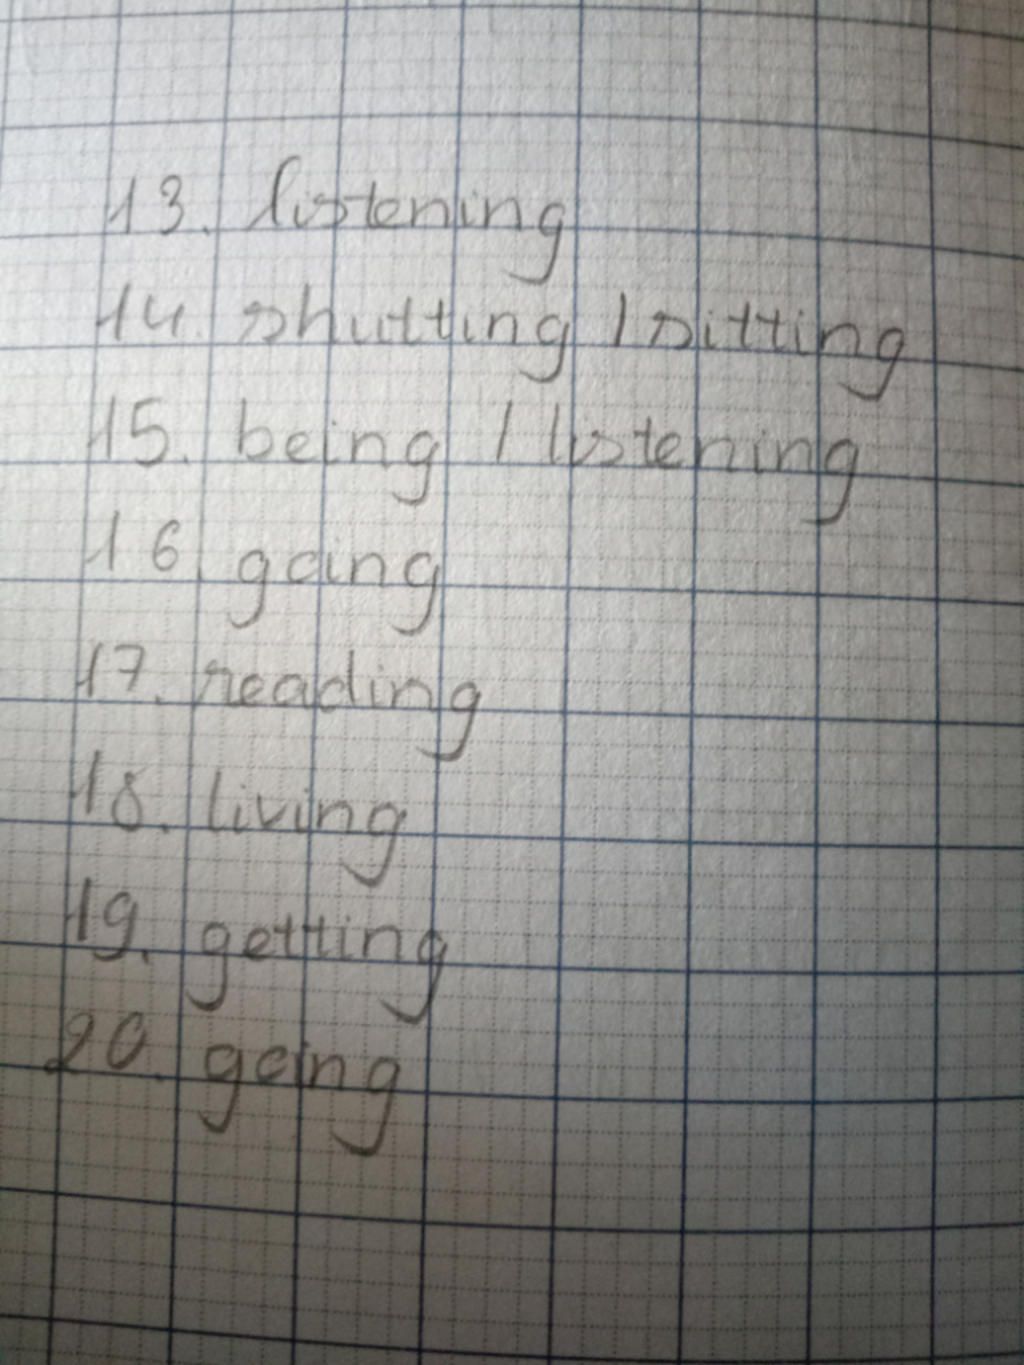 13. listening
14. shutting / sitting
15. being / listening
16 going
17. reading
18. living
19. getting
20. going